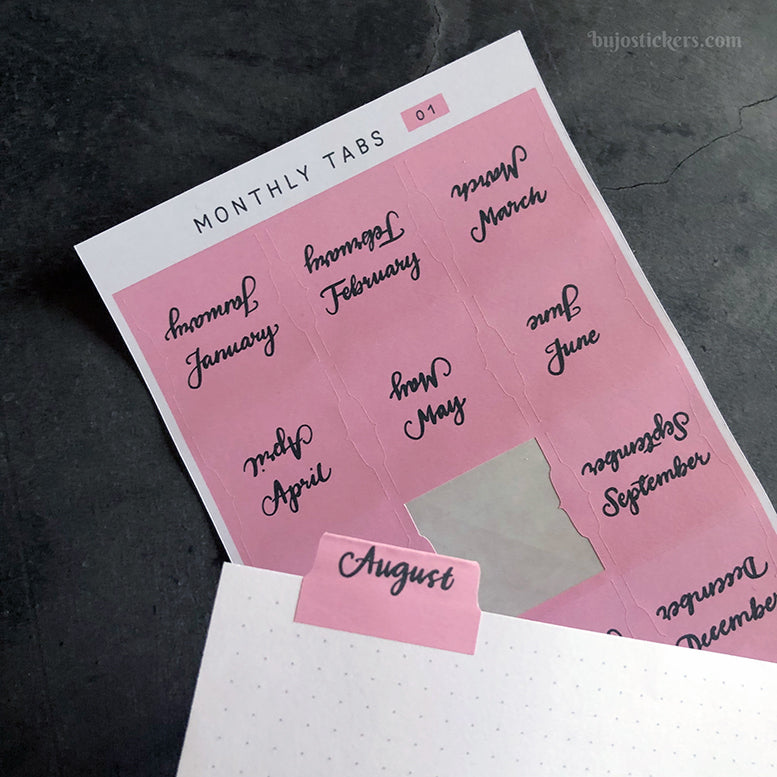 bujostickers.com
MONTHLY TABS 01
January
January
February
February
March
March
April
April
May
May
June
June
September
September
December
December
August